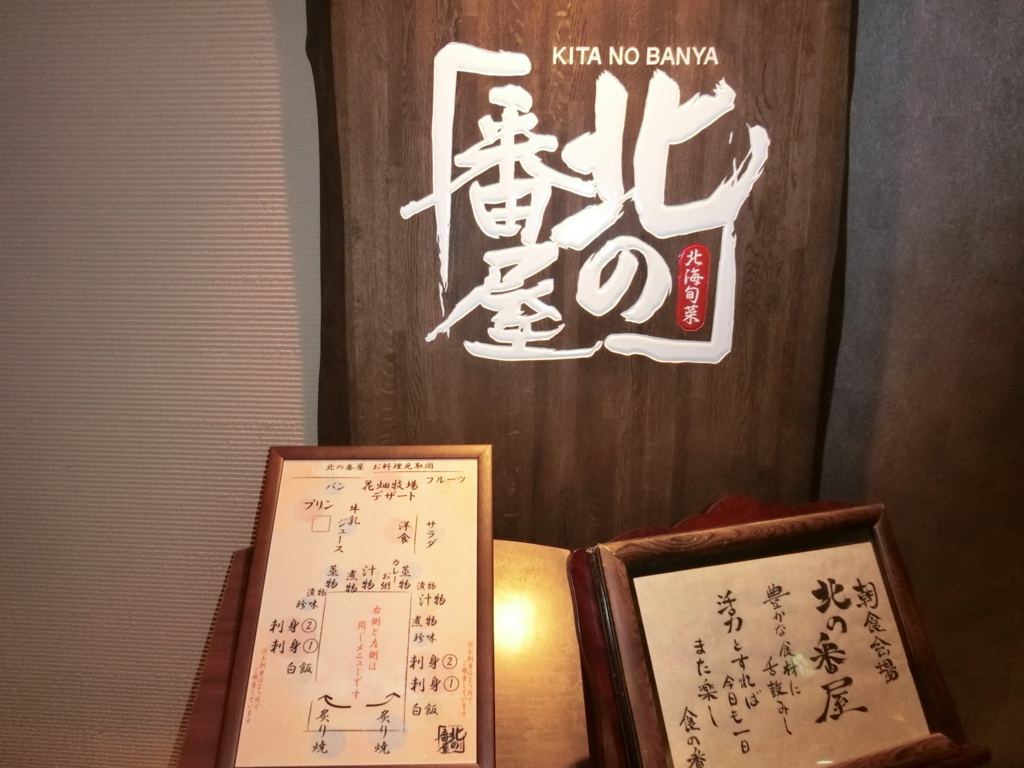 KITA NO BANYA
北の
番屋
北海旬菜
北の番屋 お料理見取図
パン
花畑牧場
デザート
フルーツ
プリン
牛乳
ジュース
洋食
サラダ
蒸物
煮物
汁物
お粥
カレー
蒸物
漬物
珍味
漬物
汁物
煮物
珍味
刺身②
刺身①
白飯
右側と左側は
同じメニューです
刺身②
刺身①
白飯
炙り焼
炙り焼
北の
番屋
朝食会場
北の番屋
豊かな食料に
舌鼓みし
活力とすれば
今日も一日
また楽し
食の番